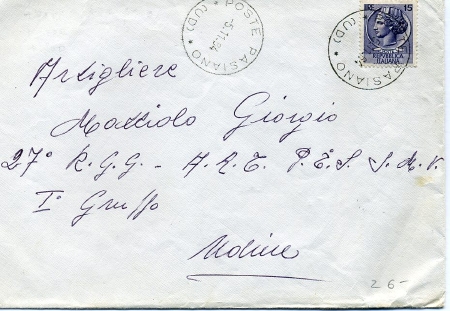 POSTE PASIANO * (UD) *
-5.11.54
POSTE PASIANO * (UD) *
L. 15
REPUBBLICA
ITALIANA
Artigliere
Giorgio
27° R.G.G. - A.R.T. P.E.S. S.M.V.
I° Gruppo
Udine
2 6-